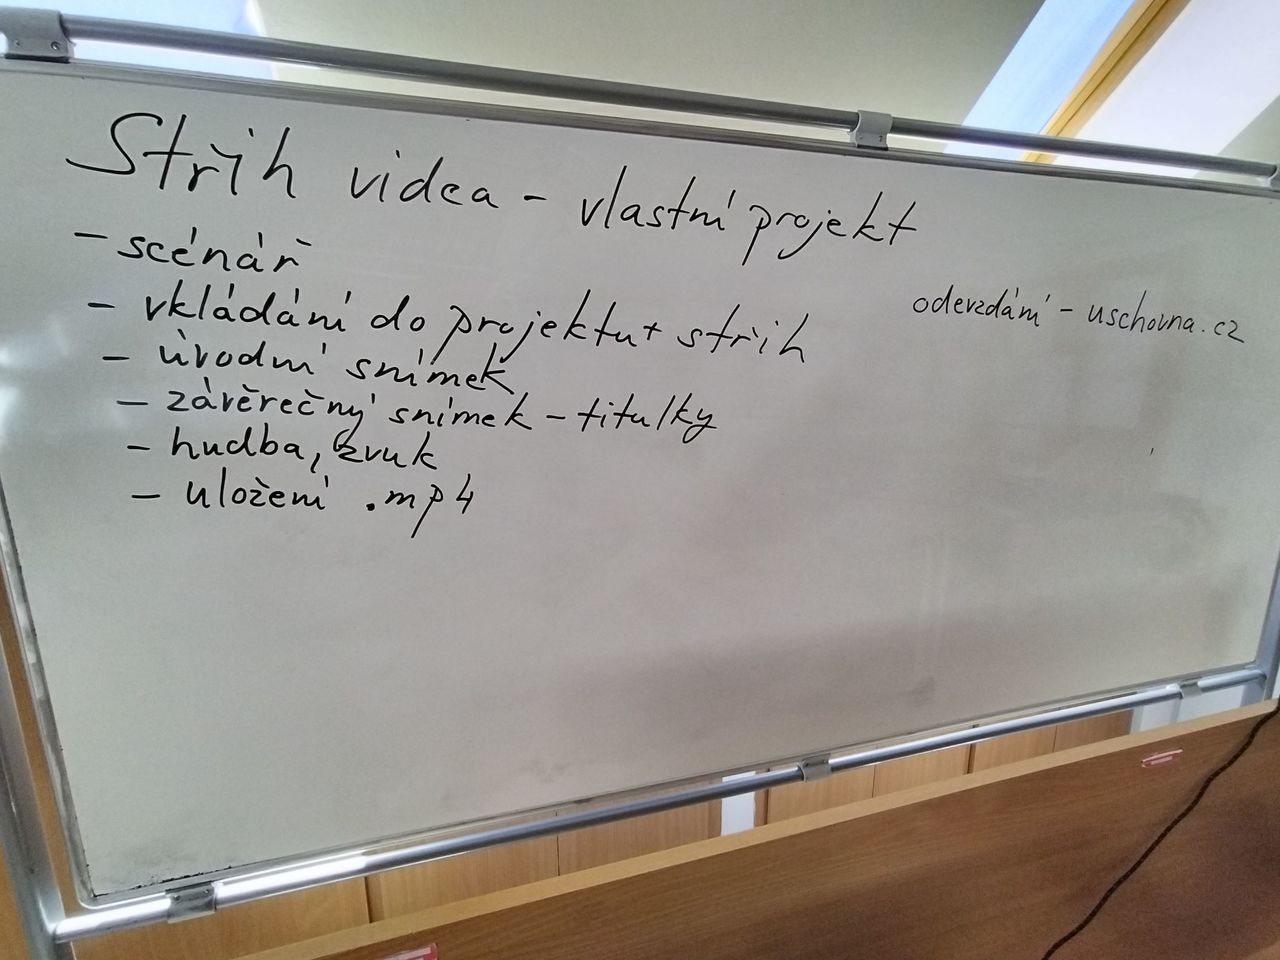 Střih videa - vlastní projekt
- scénář
- vkládání do projektu + střih
- úvodní snímek
- závěrečný snímek - titulky
- hudba, zvuk
- uložení .mp4
odevzdání - uschovna.cz